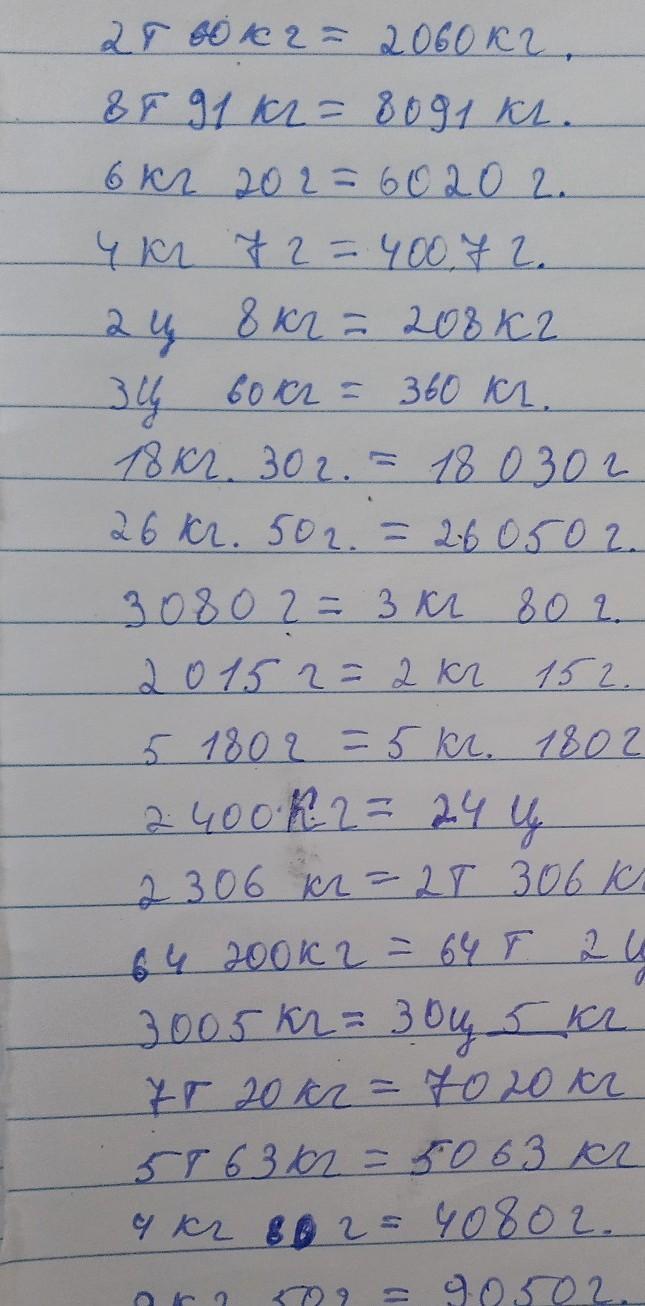 2т 60кг = 2060кг.
8т 91 кг = 8091 кг.
6 кг 20 г = 6020 г.
4 кг 7 г = 4007 г.
2 ц 8 кг = 208 кг
3ц 60кг = 360 кг.
18 кг. 30 г. = 18 030 г
26 кг. 50 г. = 26 050 г.
3080 г = 3 кг 80 г.
2 015 г = 2 кг 15 г.
5 180 г = 5 кг. 180 г
2 400 кг = 24 ц
2 306 кг = 2т 306 к
64 200кг = 64 т 2 ц
3005 кг = 30ц 5 кг
7т 20 кг = 7020 кг
5т 63 кг = 5063 кг
4 кг 80 г = 4080 г.
9 кг 50 г = 9050 г.